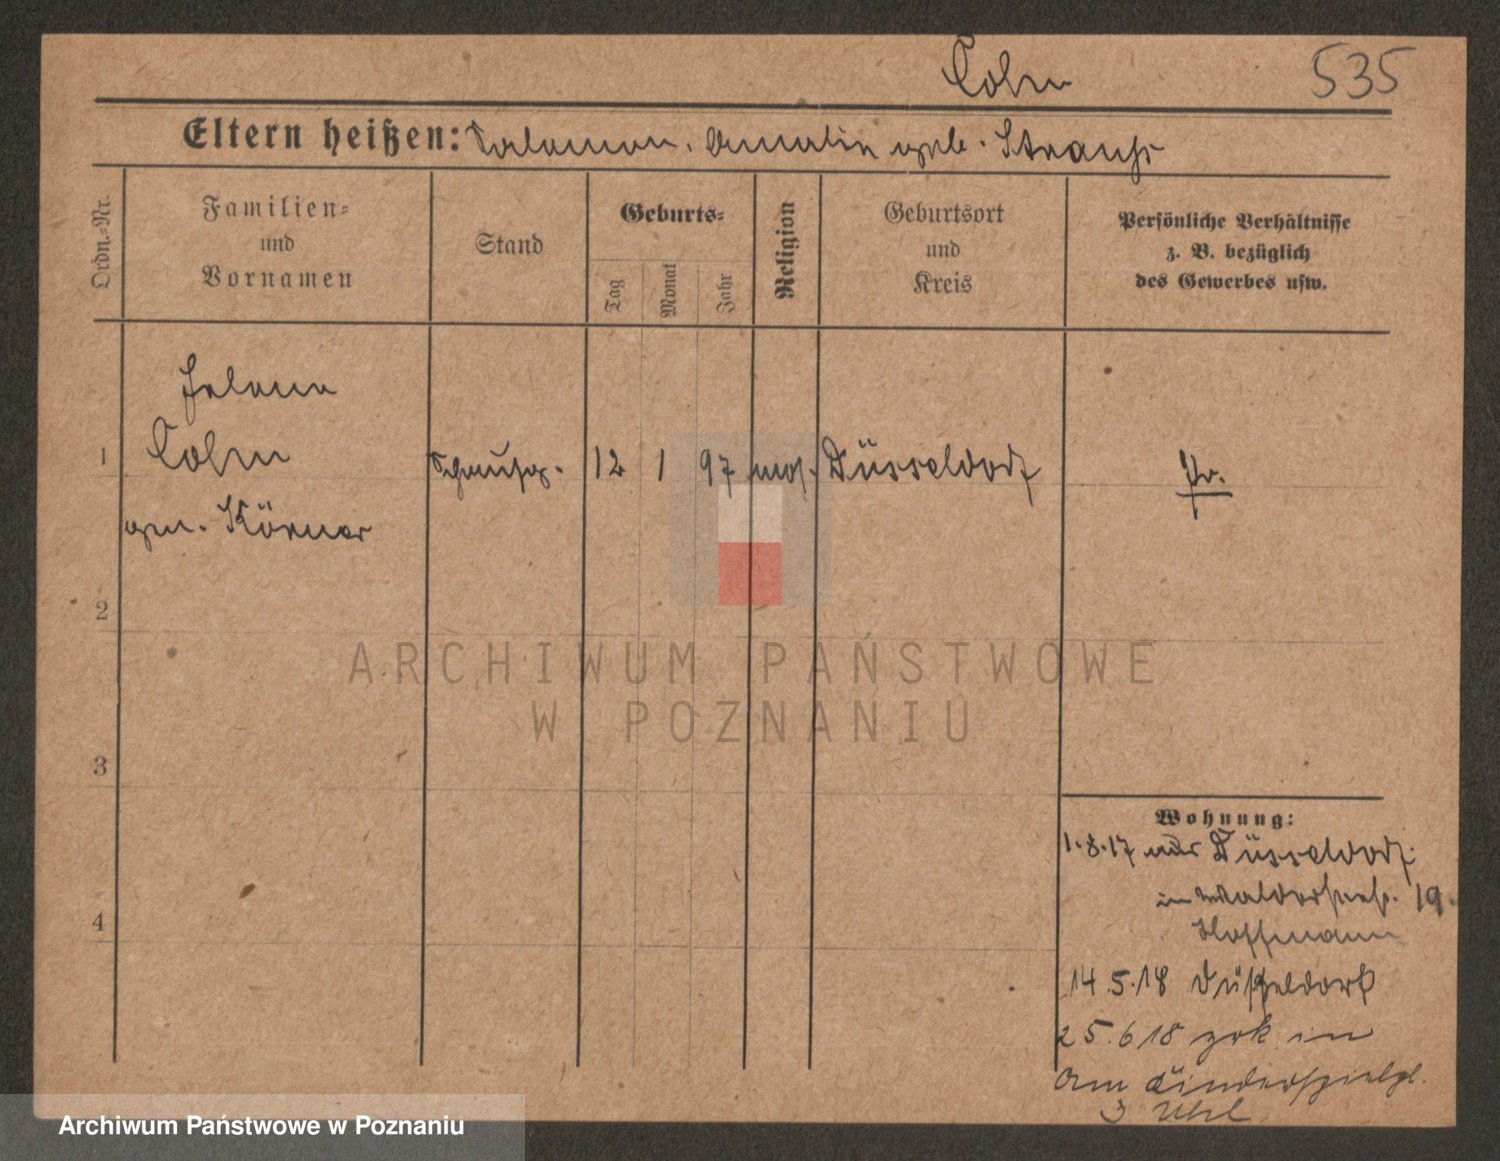 Cohn
535
Eltern heißen: Salomon, Amalie geb. Strauss
Ordn.-Nr.
Familien-
und
Vornamen
Stand
Geburts-
Tag
Monat
Jahr
Religion
Geburtsort
und
Kreis
Persönliche Verhältnisse
z. B. bezüglich
des Gewerbes usw.
Helene
1 Cohn Schausp. 12 1 97 mos. Düsseldorf Pr.
gen. Körner
2
3
4
Wohnung:
1.8.17 aus Düsseldorf
in 19.
Hoffmann
14.5.18 Düsseldorf
25.6 18 zrk in
Am
3 Uhl
ARCHIWUM PAŃSTWOWE
W POZNANIU
Archiwum Państwowe w Poznaniu